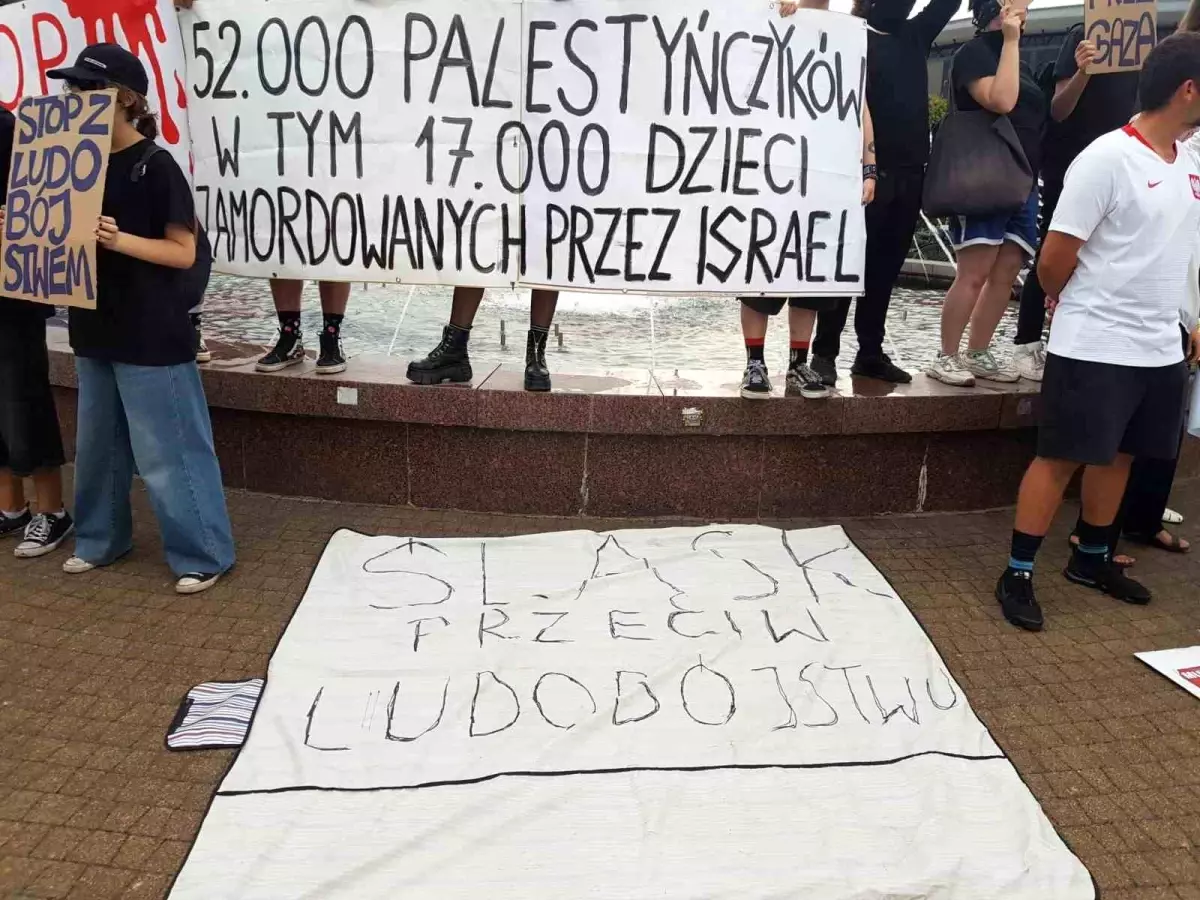 STOP Z
LUDO
BÓJ
STWEM
52.000 PALESTYŃCZYKÓW
W TYM 17.000 DZIECI
ZAMORDOWANYCH PRZEZ ISRAEL
GAZA
ŚLĄSK
PRZECIW
LUDOBÓJSTWU